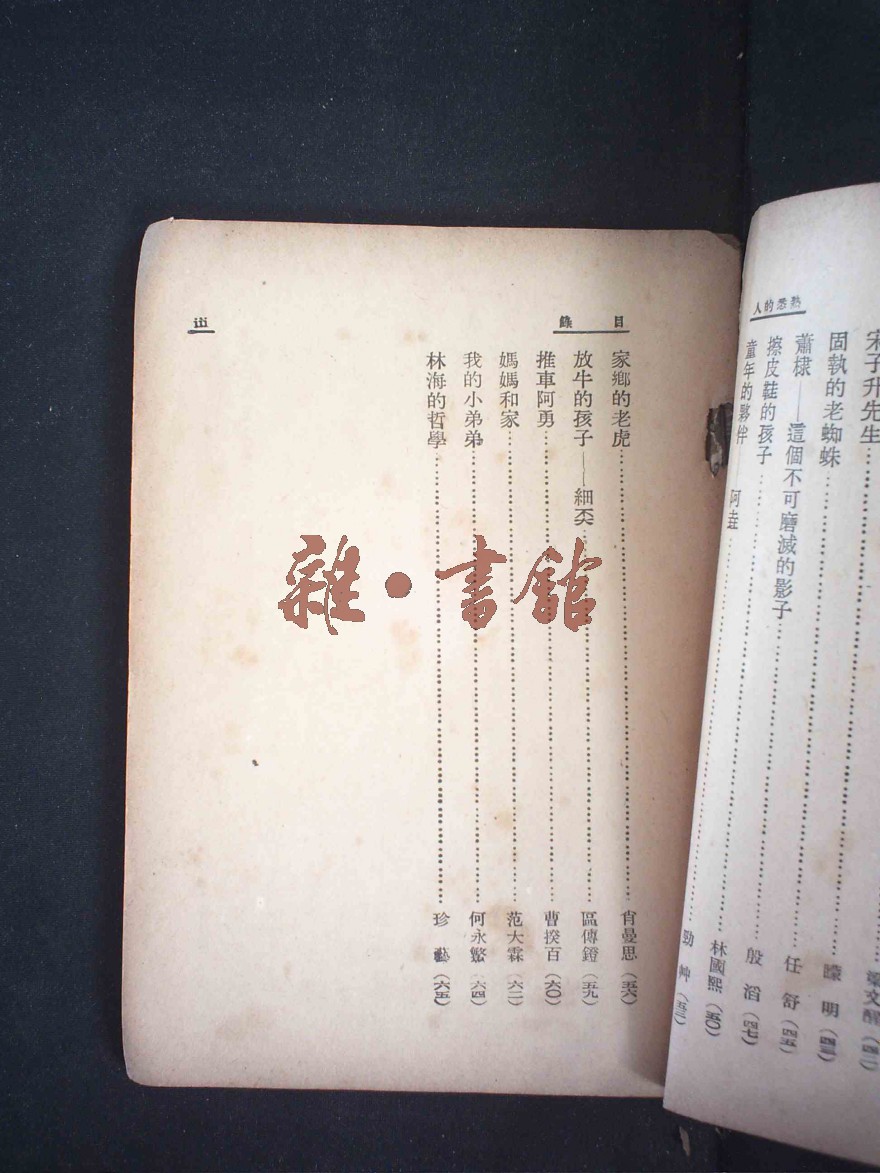 人的悉熟
宋子升先生……梁文醒（四二）
固執的老蜘蛛……明（四三）
蕭棣——這個不可磨滅的影子……任舒（四五）
擦皮鞋的孩子……殷滔（四七）
童年的夥伴……林國熙（五〇）
阿𡌶……勁艸（五三）
錄目
家鄉的老虎……肖曼思（五六）
放牛的孩子——細奀……區傳鐙（五九）
推車阿勇……曹揆百（六〇）
媽媽和家……范大霖（六二）
我的小弟弟……何永繁（六四）
林海的哲學……珍藝（六五）
雜·書館